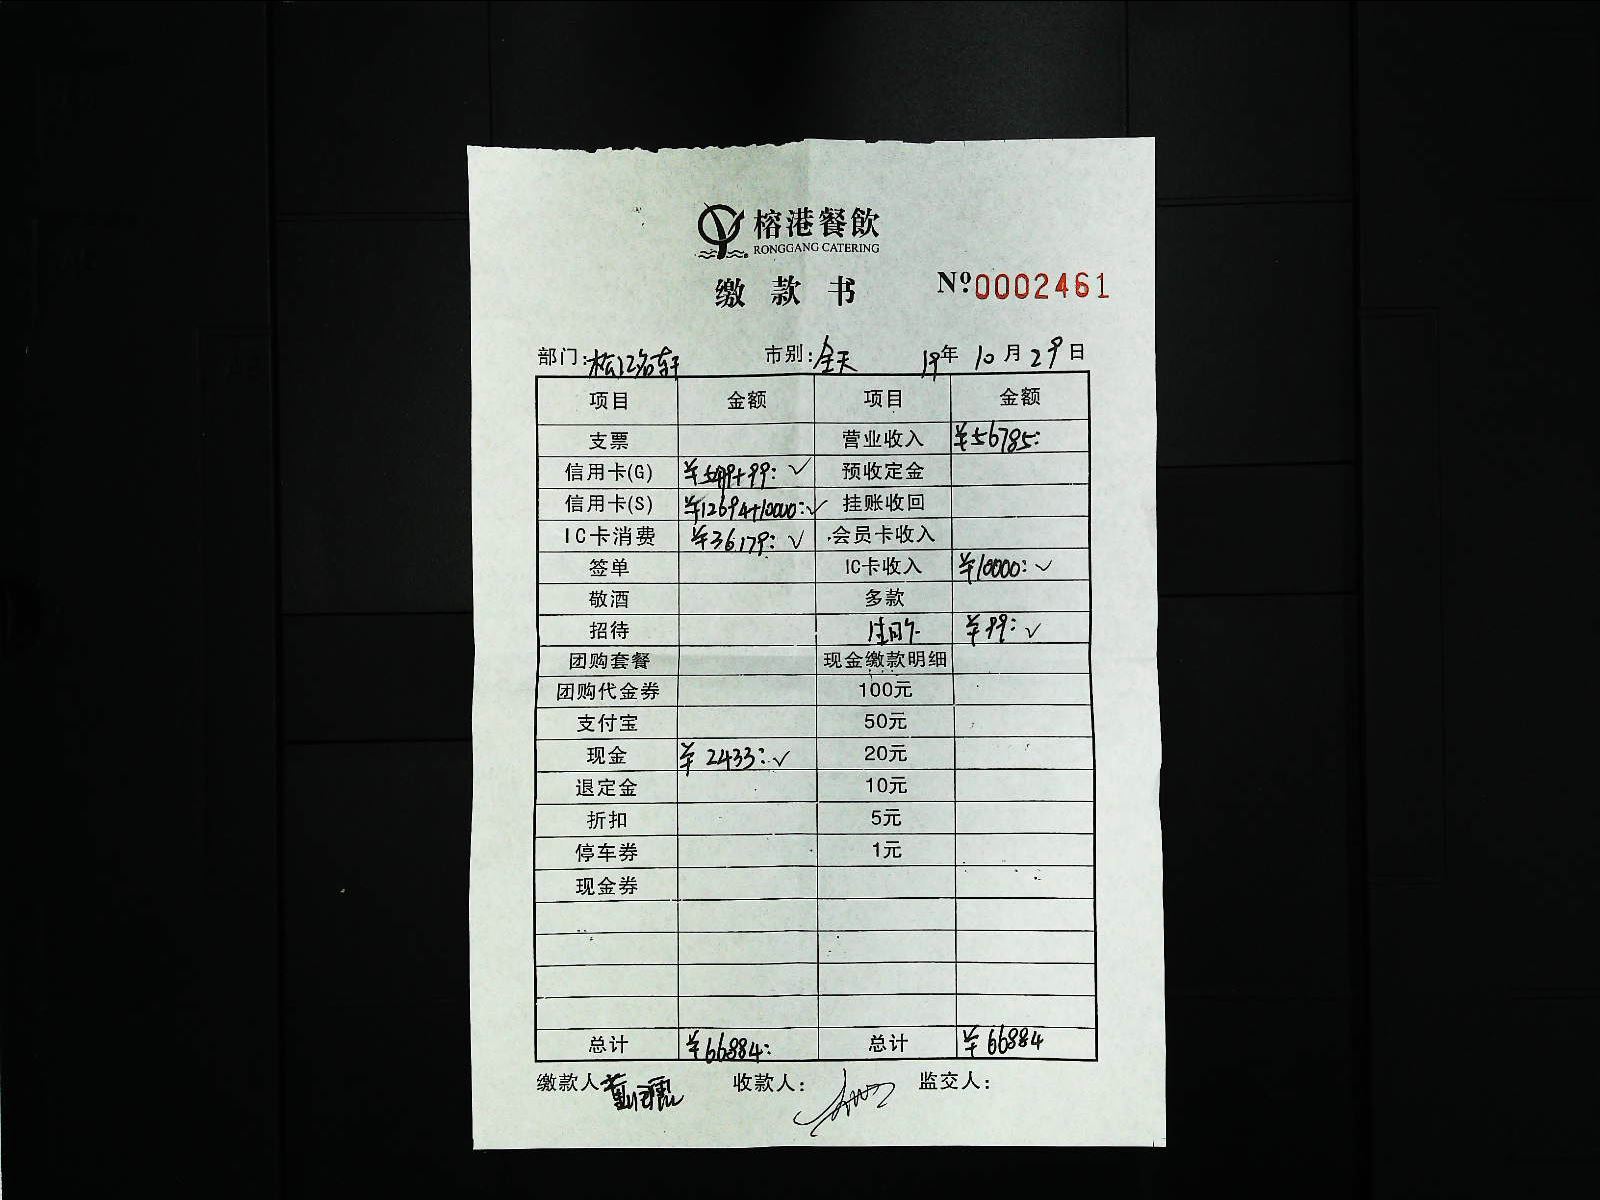 榕港餐飲
RONGGANG CATERING
缴款书 Nº 0002461
部门: 松江名轩 市别: 全天 19年 10月 29日
项目 金额 项目 金额
支票 营业收入 ¥56785:
信用卡(G) ¥5479+99: ✓ 预收定金
信用卡(S) ¥12694+10000: ✓ 挂账收回
IC卡消费 ¥36179: ✓ 会员卡收入
签单 IC卡收入 ¥10000: ✓
敬酒 多款
招待 ¥99: ✓
团购套餐 现金缴款明细
团购代金券 100元
支付宝 50元
现金 ¥2433: ✓ 20元
退定金 10元
折扣 5元
停车券 1元
现金券
总计 ¥66884: 总计 ¥66884
缴款人 收款人: 监交人: